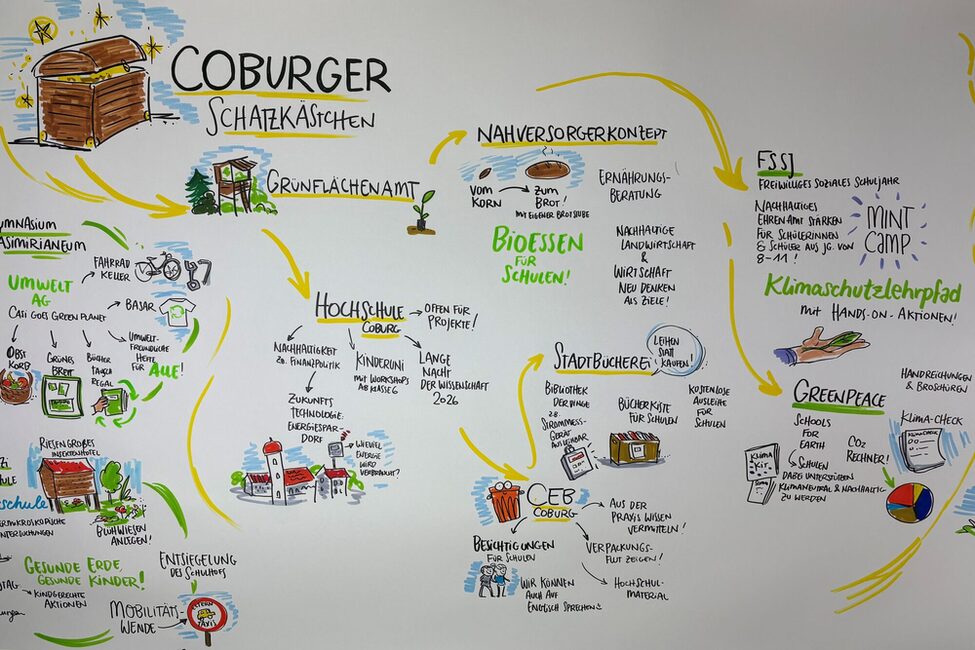 COBURGER
SCHATZKÄSTCHEN
GRÜNFLÄCHENAMT
UMWELT
AG
CASI GOES GREEN PLANET
FAHRRAD
KELLER
BASAR
UMWELT-
FREUNDLICHE
HEFTE
FÜR ALLE!
OBST
KORB
GRÜNES
BRETT
BÜCHER
TAUSCH
REGAL
RIESENGROßES
INSEKTENHOTEL
BLÜHWIESEN
ANLEGEN!
GESUNDE ERDE,
GESUNDE KINDER!
KINDGERECHTE
AKTIONEN
ENTSIEGELUNG
DES SCHULHOFS
MOBILITÄTS-
WENDE
ELTERN
TAXIS
HOCHSCHULE
COBURG
OFFEN FÜR
PROJEKTE!
NACHHALTIGKEIT
ZB. FINANZPOLITIK
ZUKUNFTS
TECHNOLOGIE:
ENERGIESPAR-
DORF
KINDERUNI
MIT WORKSHOPS
AB KLASSE 6
LANGE
NACHT
DER WISSENSCHAFT
2026
WIEVIEL
ENERGIE
WIRD
VERBRAUCHT?
NAHVERSORGERKONZEPT
VOM
KORN
ZUM
BROT!
MIT EIGENER BROTSTUBE
ERNÄHRUNGS-
BERATUNG
BIOESSEN
FÜR
SCHULEN!
NACHHALTIGE
LANDWIRTSCHAFT
&
WIRTSCHAFT
NEU DENKEN
ALS ZIELE!
STADTBÜCHEREI
LEIHEN
STATT
KAUFEN!
BIBLIOTHEK
DER DINGE
ZB.
STROMMESS-
GERÄT
AUSLEIHBAR
BÜCHERKISTE
FÜR SCHULEN
KOSTENLOSE
AUSLEIHE
FÜR
SCHULEN
CEB
COBURG
AUS DER
PRAXIS WISSEN
VERMITTELN!
BESICHTIGUNGEN
FÜR SCHULEN
VERPACKUNGS-
FLUT ZEIGEN!
WIR KÖNNEN
AUCH AUF
ENGLISCH SPRECHEN
HOCHSCHUL-
MATERIAL
FSSJ
FREIWILLIGES SOZIALES SCHULJAHR
NACHHALTIGES
EHRENAMT STÄRKEN
FÜR SCHÜLERINNEN
& SCHÜLER AUS JG. VON
8-11!
MINT
CAMP
Klimaschutzlehrpfad
MIT HANDS-ON-AKTIONEN!
GREENPEACE
HANDREICHUNGEN
& BROSCHÜREN
SCHOOLS
FOR
EARTH
SCHULEN
DABEI UNTERSTÜTZEN
KLIMANEUTRAL & NACHHALTIG
ZU WERDEN
CO2
RECHNER!
KLIMA-CHECK
KLIMA
KIT